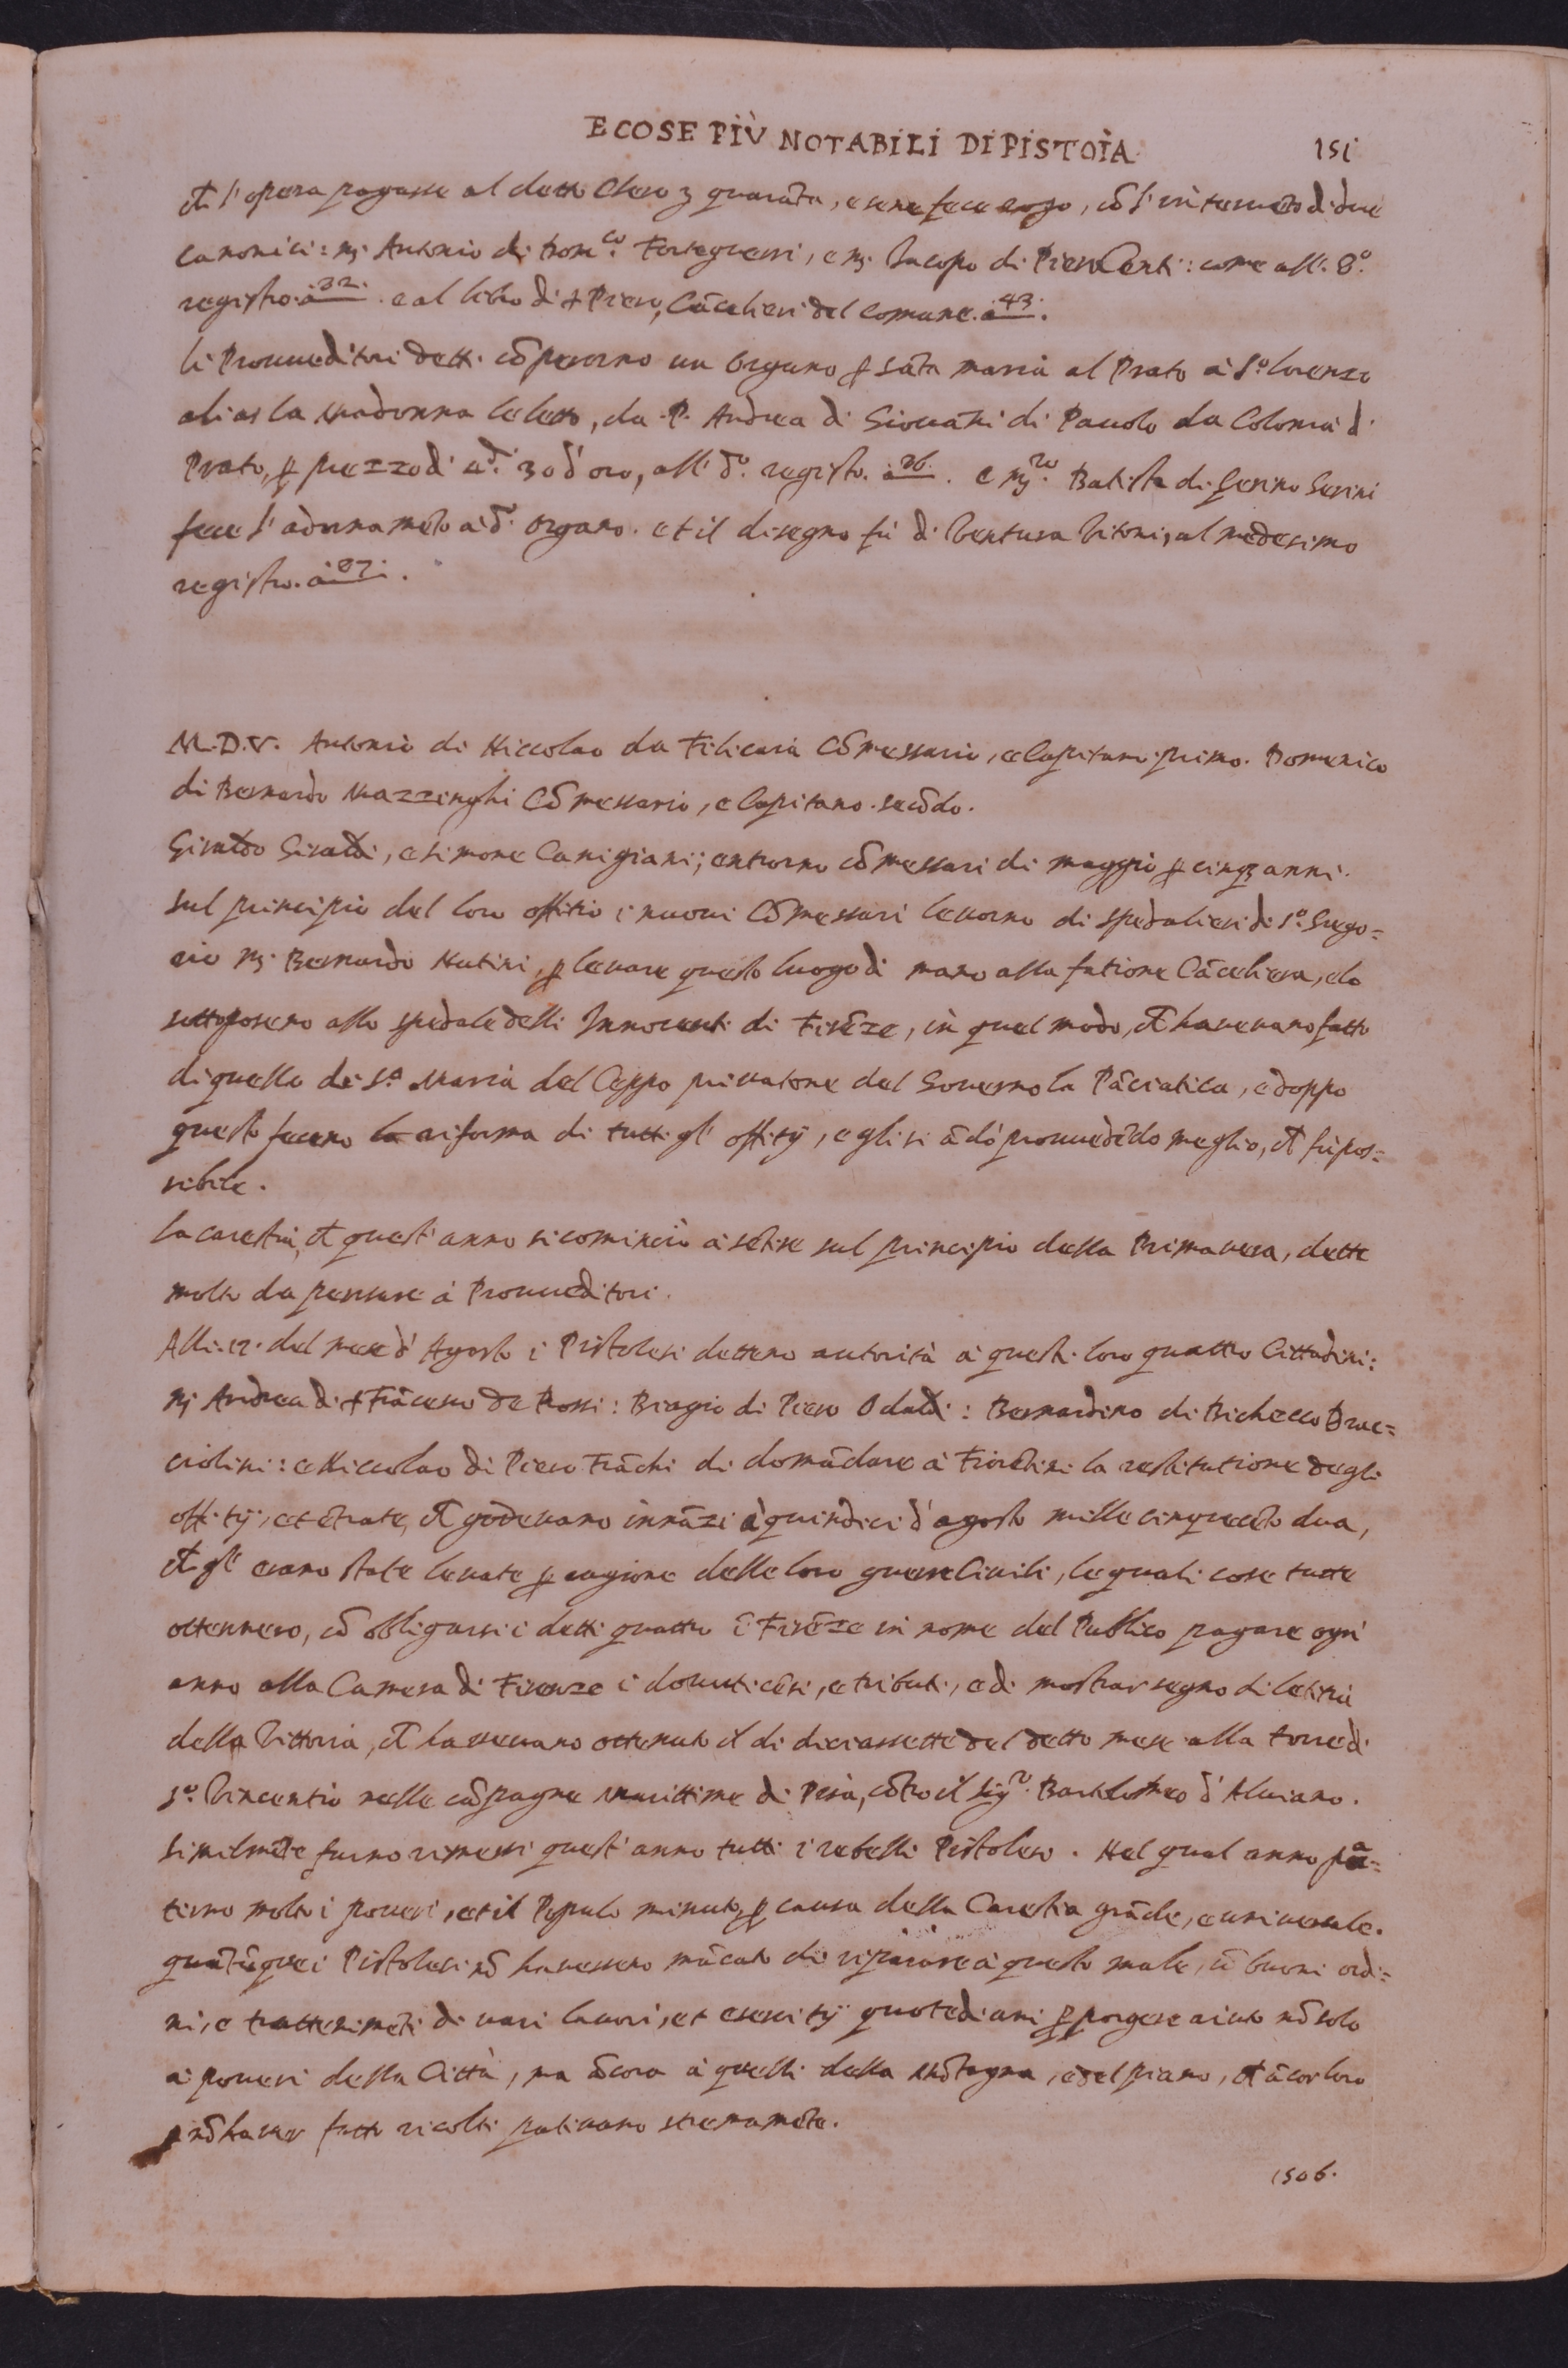 E COSE PIÙ NOTABILI DI PISTOIA 151
ch̄ l'opera pagasse al detto Clero ʒ quarāta, e se ne fece rogo, cō l'interuēto di due
canonici: mʒ. Antonio di Dom.co Forteguerri, e mʒ. Jacopo di Piero Centi: come all'. 8.o
registro. à 32. e al libro di s Piero, Cācelieri del comune. à 43.
li Proueditori detti cōperorno un Organo ꝑ sāta maria al Prato à S.o Lorenzo
alias la Madonna del letto, da P. Andrea di Giouāni di Pauolo da Colonia di
Prato, ꝑ prezzo di d. 30 d'oro, all' d.o registro. à 26. e mʒ.ro Batista di Gerino Gerini
fece l'adornamēto à d.o organo. et il disegno fù di Ventura Vitoni, al medesimo
registro. à 27.
M.D.V. Antonio di Niccolao da Filicaia Cōmessario, e Capitano primo. Domenico
di Bernardo Mazzinghi Cōmessario, e Capitano secōdo.
Giraldo Giraldi, e Simone Canigiani; entrorno cōmessari di maggio ꝑ cinqʒ anni.
sul principio del loro offitio i nuoui Cōmessari leuorno di spedalieri di S.o Grego=
rio mʒ. Bernardo Nutini, ꝑ leuare questo luogo di mano alla fatione Cācelliera, e lo
sottoposero allo spedale delli Innocenti di Firēze, in quel modo, ch̄ haueuano fatto
di quello di S.a Maria del Ceppo priuatone del Gouerno la Pāciatica, e doppo
questo fecero la riforma di tutti gl' offitij, e gli si ādò prouuedēdo meglio, ch̄ fù pos=
sibile.
la carestia, ch̄ quest' anno si cominciò à sētire sul principio della Primauera, dette
molto da pensare à Proueditori.
Alli. 12. del mese d' Agosto i Pistolesi dettero autorità à questi loro quattro Cittadini:
mʒ Andrea di s Frācesco de Rossi: Biagio di Piero Odaldi: Bernardino di Bichecco Brac=
ciolini: e Niccolao di Piero Frāchi di domādare à Fiorētini la restitutione degli
offitij, et ētrate, ch̄ godeuano innāzi à quindici d'agosto mille cinquecēto dua,
ch̄ gl' erano state leuate ꝑ cagione delle loro guerre Ciuili, le quali cose tutte
ottennero, cō obligarsi i detti quattro ī Firēze in nome del Publico pagare ogni
anno alla Camera di Firenze i douuti cēsi, e tributi, e di mostrar segno di letitia
della Vittoria, ch̄ haueuano ottenuto il di diciassette del detto mese alla torre di
S.o Vincentio nelle cāpagne marittime di Pisa, cōtro il Sig.r Bartolomeo d'Aluiano.
similmēte furno rimessi quest' anno tutti i rebelli Pistolesi. Nel qual anno pa=
tirno molto i poueri, et il Popolo minuto, ꝑ causa della Carestia grāde, e uniuersale.
quātūque i Pistolesi nō hauessero mācato di riparare à questo male, cō buoni ordi=
ni, e trattenimēti di uari lauori, et esercitij quotediani ꝑ porgere aiuto nō solo
à poueri della Città, ma ācora à quelli della Mōtagna, e del piano, ch̄ ācor loro
ꝑ nō hauer fatto ricolti patiuano stremamēte.
1506.